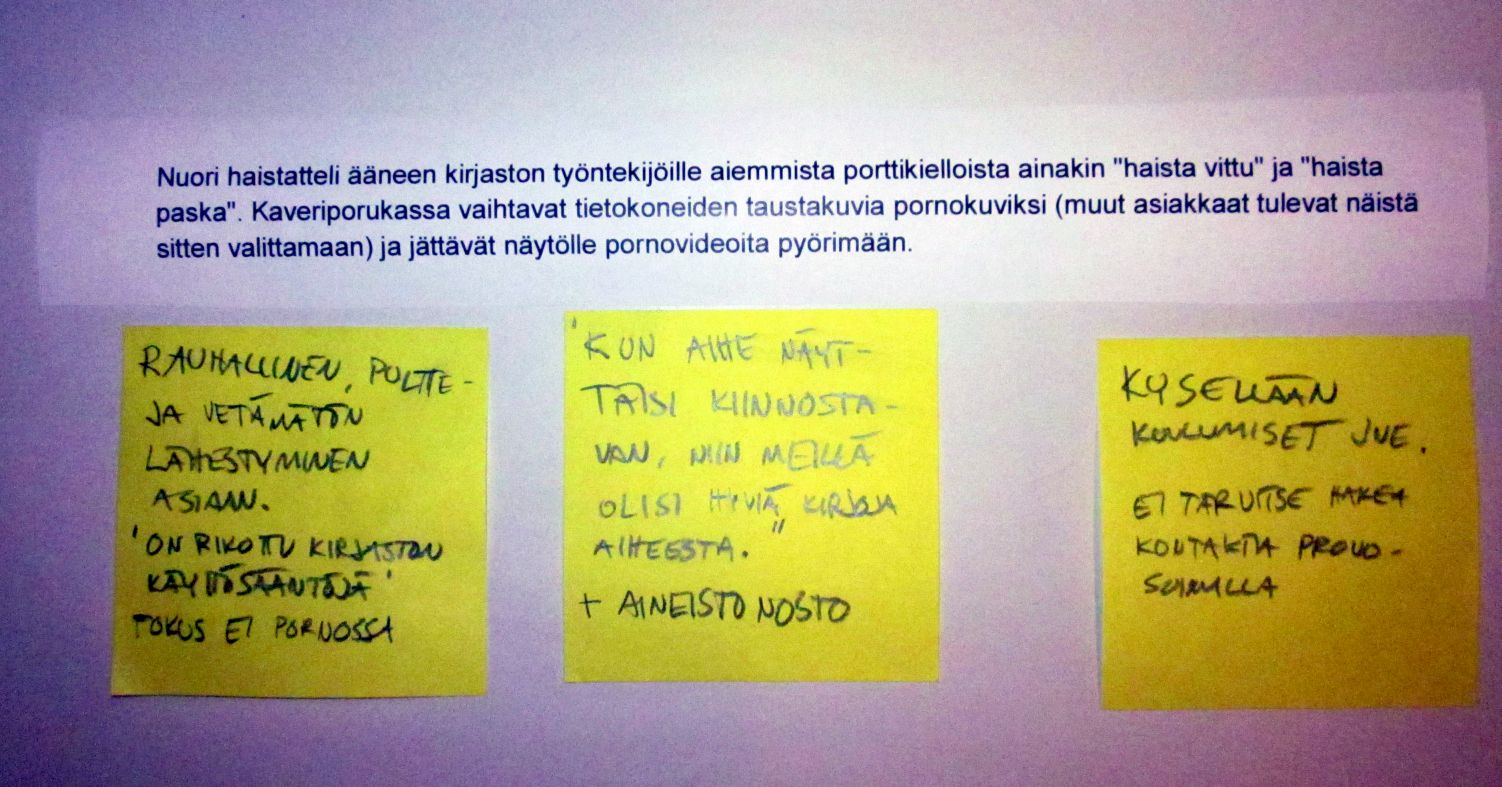 Nuori haistatteli ääneen kirjaston työntekijöille aiemmista porttikielloista ainakin "haista vittu" ja "haista
paska". Kaveriporukassa vaihtavat tietokoneiden taustakuvia pornokuviksi (muut asiakkaat tulevat näistä
sitten valittamaan) ja jättävät näytölle pornovideoita pyörimään.
RAUHALLINEN, POLTTE-
JA VETÄMÄTÖN
LÄHESTYMINEN
ASIAAN.
'ON RIKOTTU KIRJASTON
KÄYTTÖSÄÄNTÖJÄ'
FOKUS EI PORNOSSA
'KUN AIHE NÄYT-
TÄISI KIINNOSTA-
VAN, NIIN MEILLÄ
OLISI HYVIÄ KIRJOJA
AIHEESTA."
+ AINEISTO NOSTO
KYSELLÄÄN
KUULUMISET JNE.
EI TARVITSE HAKEA
KONTAKTIA PROVO-
SOIMALLA